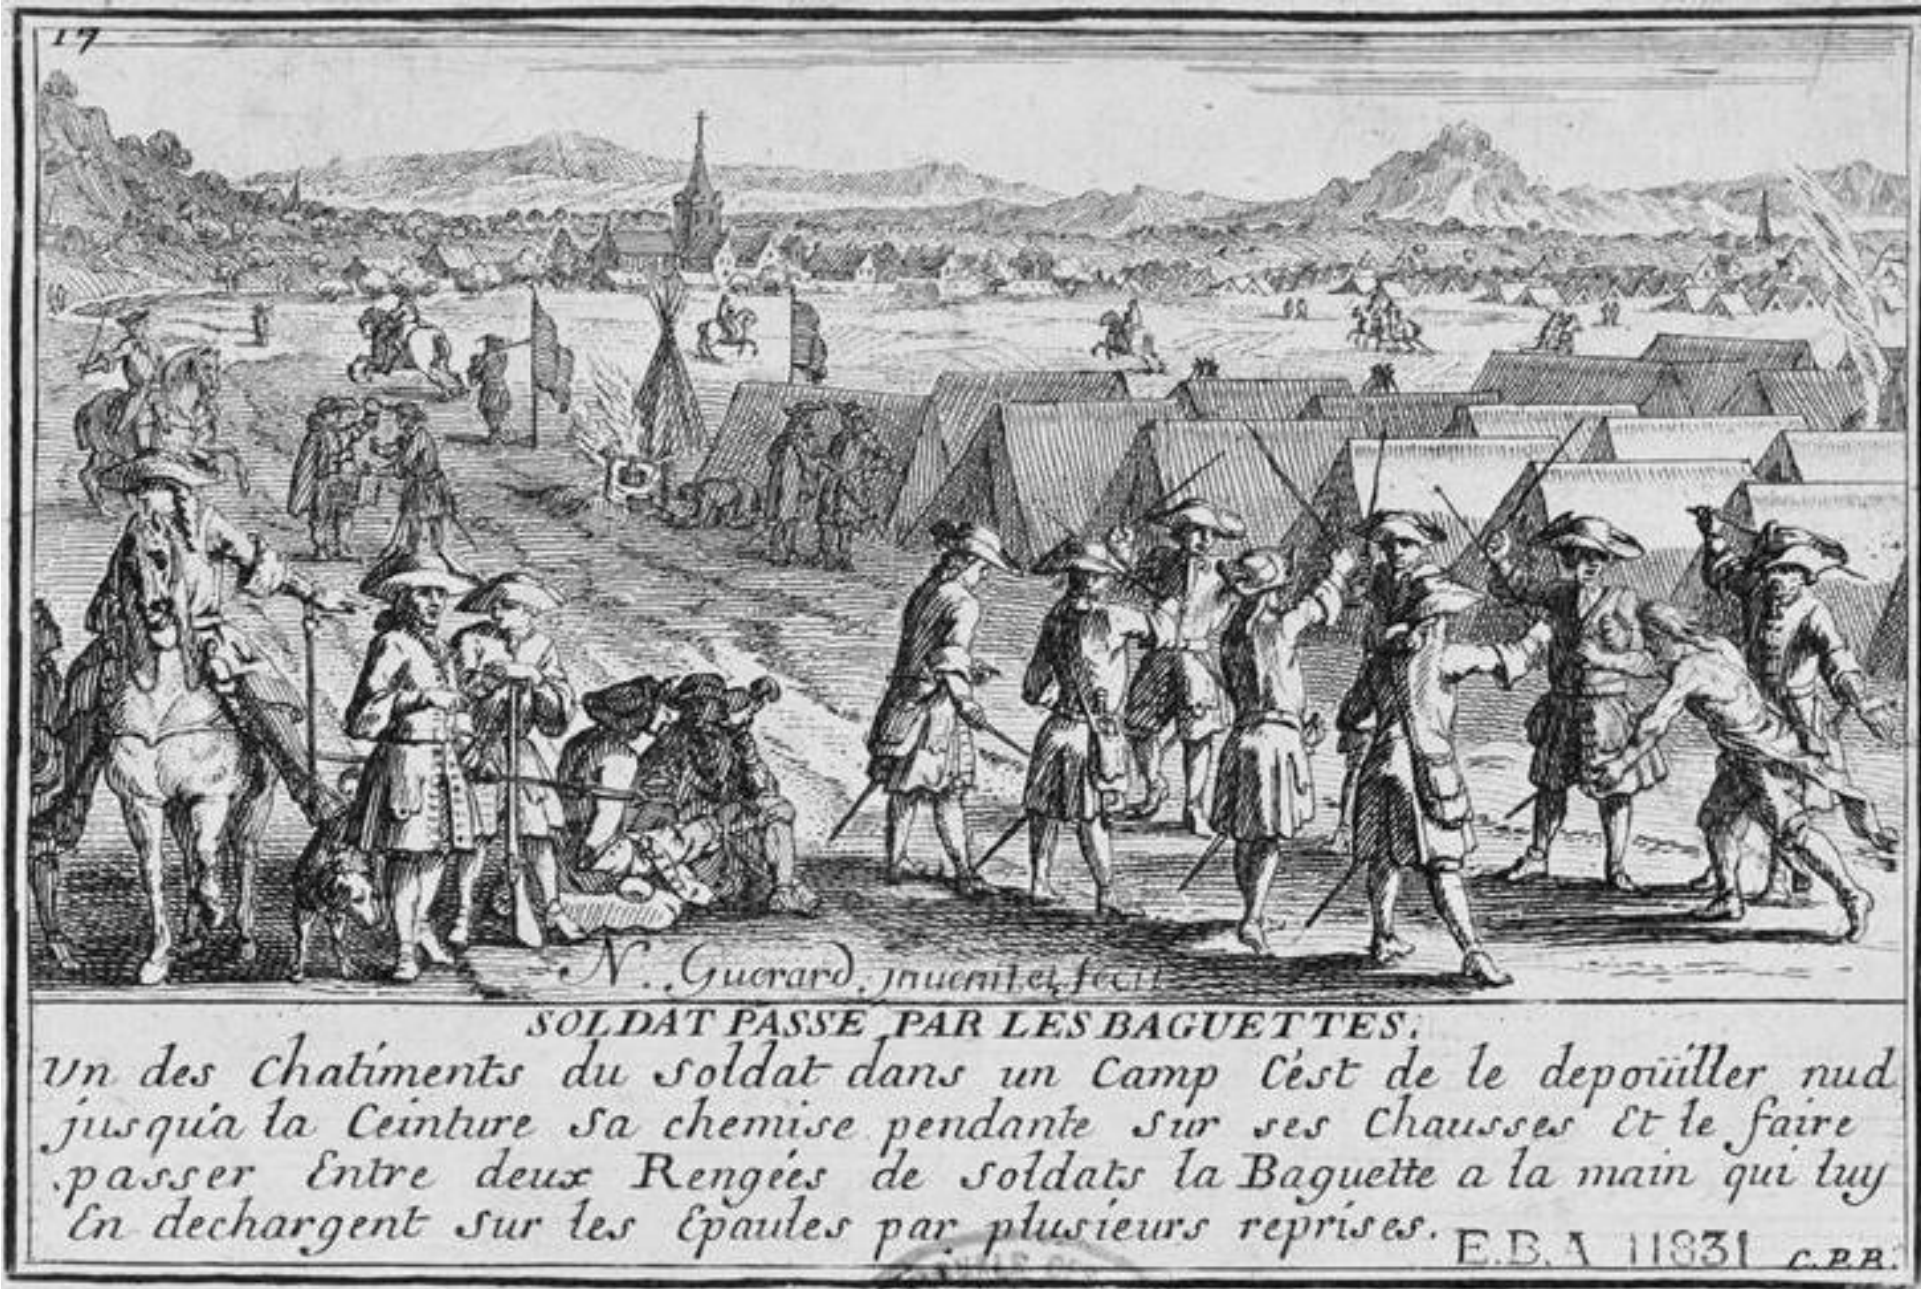 17
N. Guerard, jnuenit et fecit
SOLDAT PASSE PAR LES BAGUETTES.
Un des Chatiments du Soldat dans un Camp C'ést de le depoüiller nud
jusqu'a la Ceinture Sa chemise pendante Sur ses Chausses Et le faire
passer Entre deux Rengées de Soldats la Baguette a la main qui luy
En dechargent Sur les Epaules par plusieurs reprises.
E.B.A 11831
C.P.R.